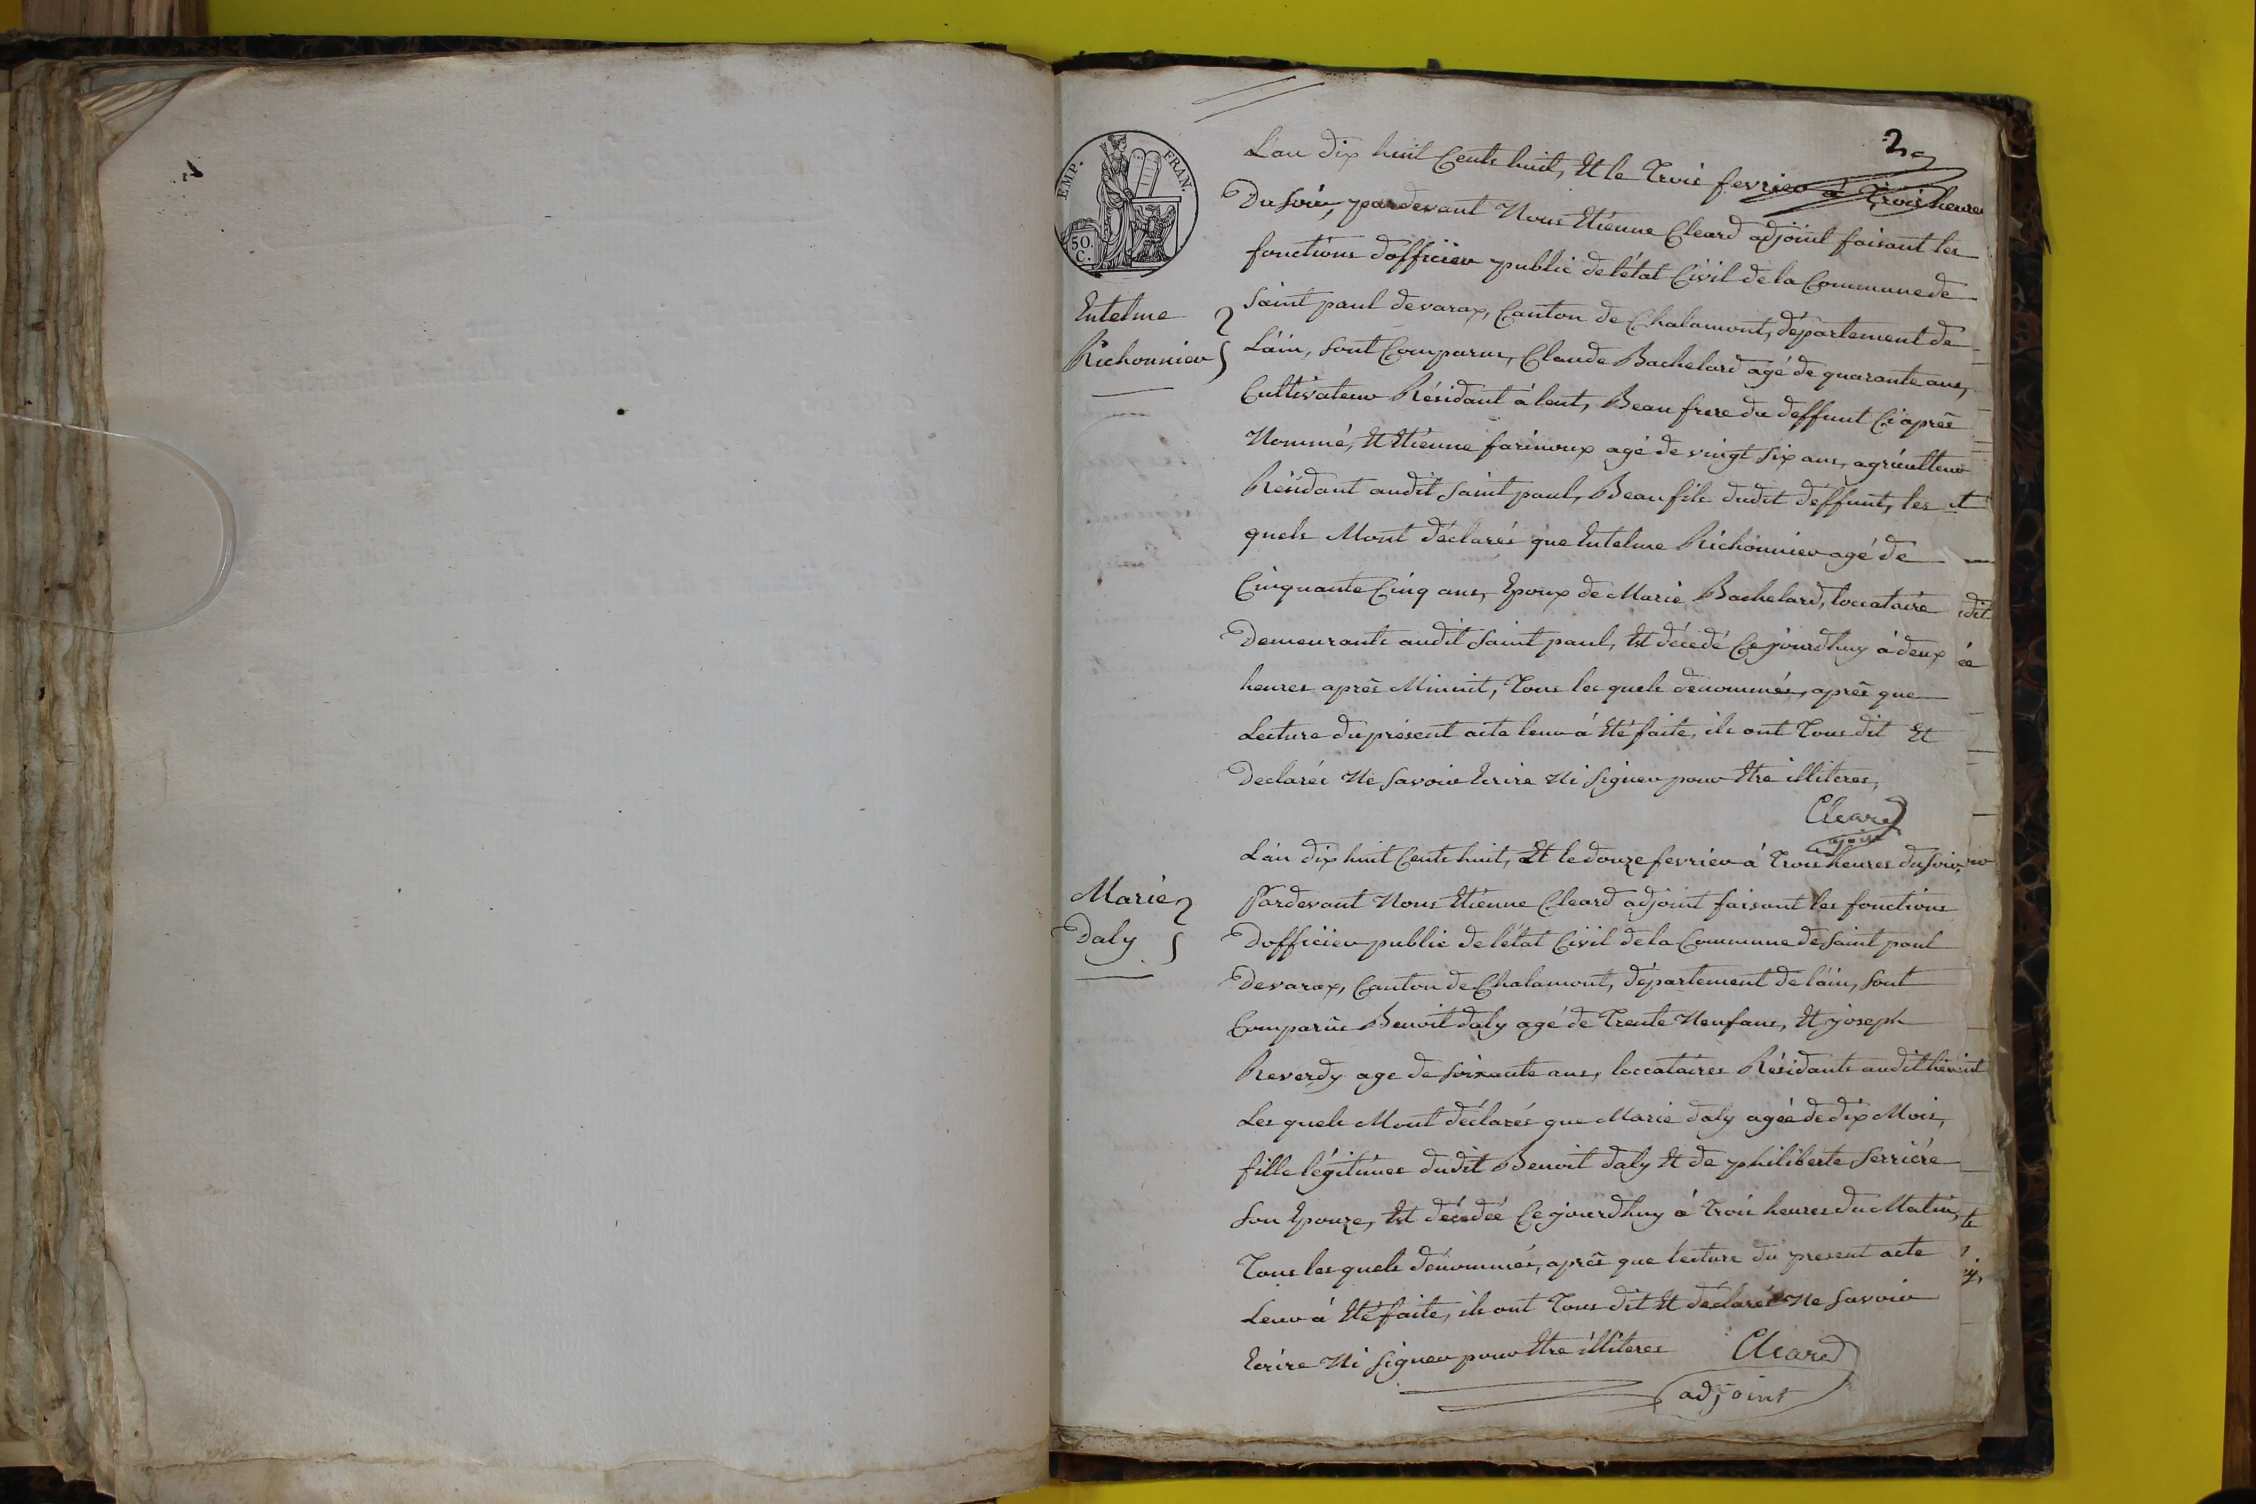 2
EMP. FRAN.
50.
C.
L'an dix huit Cents huit, Et le Trois fevrier à Trois heures
Du soir, pardevant Nous Etienne Cleard adjoint faisant les
fonctions d'officier public de l'état Civil de la Commune de
Saint paul de varax, Canton de Chalamont, département de
L'ain, sont Comparus, Claude Bachelard agé de quarante ans,
Cultivateur Résidant à lent, Beau frere du deffunt Ci après
Nommé, Et Etienne farinoux agé de vingt six ans, agriculteur
Résidant audit Saint paul, Beau fils dudit deffunt, les
quels M'ont déclarés que Entelme Richonnier agé de
Cinquante Cinq ans, Epoux de Marie Bachelard, loccataire
Demeurants audit Saint paul, Est décedé Cejourdhuy à deux
heures après Minuit, Tous les quels denommés, après que
Lecture du présent acte leur à Eté faite, ils ont Tous dit Et
Declarés Ne savoir Ecrire Ni Signer pour Etre illiteres,
Cleard
ajoint
Entelme
Richonnier
L'an dix huit Cents huit, Et le douze fevrier à Trois heures du soir,
Pardevant Nous Etienne Cleard adjoint faisant les fonctions
D'officier public de l'état Civil de la Commune de Saint paul
Devarax, Canton de Chalamont, département de l'ain, sont
Comparus Benoit daly agé de Trente Neuf ans, Et joseph
Reverdy age de soixante ans, loccataires Résidants audit lieu
Les quels M'ont déclarés que Marie daly agée de dix Mois,
fille légitimes dudit Benoit daly Et de philiberte Serriére
Son Epouze, Est décedée Cejourdhuy à Trois heures du Matin,
Tous les quels dénommés, après que lecture du present acte
Leur à Eté faite, ils ont Tous dit Et déclarés Ne savoir
Ecrire Ni Signer pour Etre illiteres
Cleard
adjoint
Marie
Daly